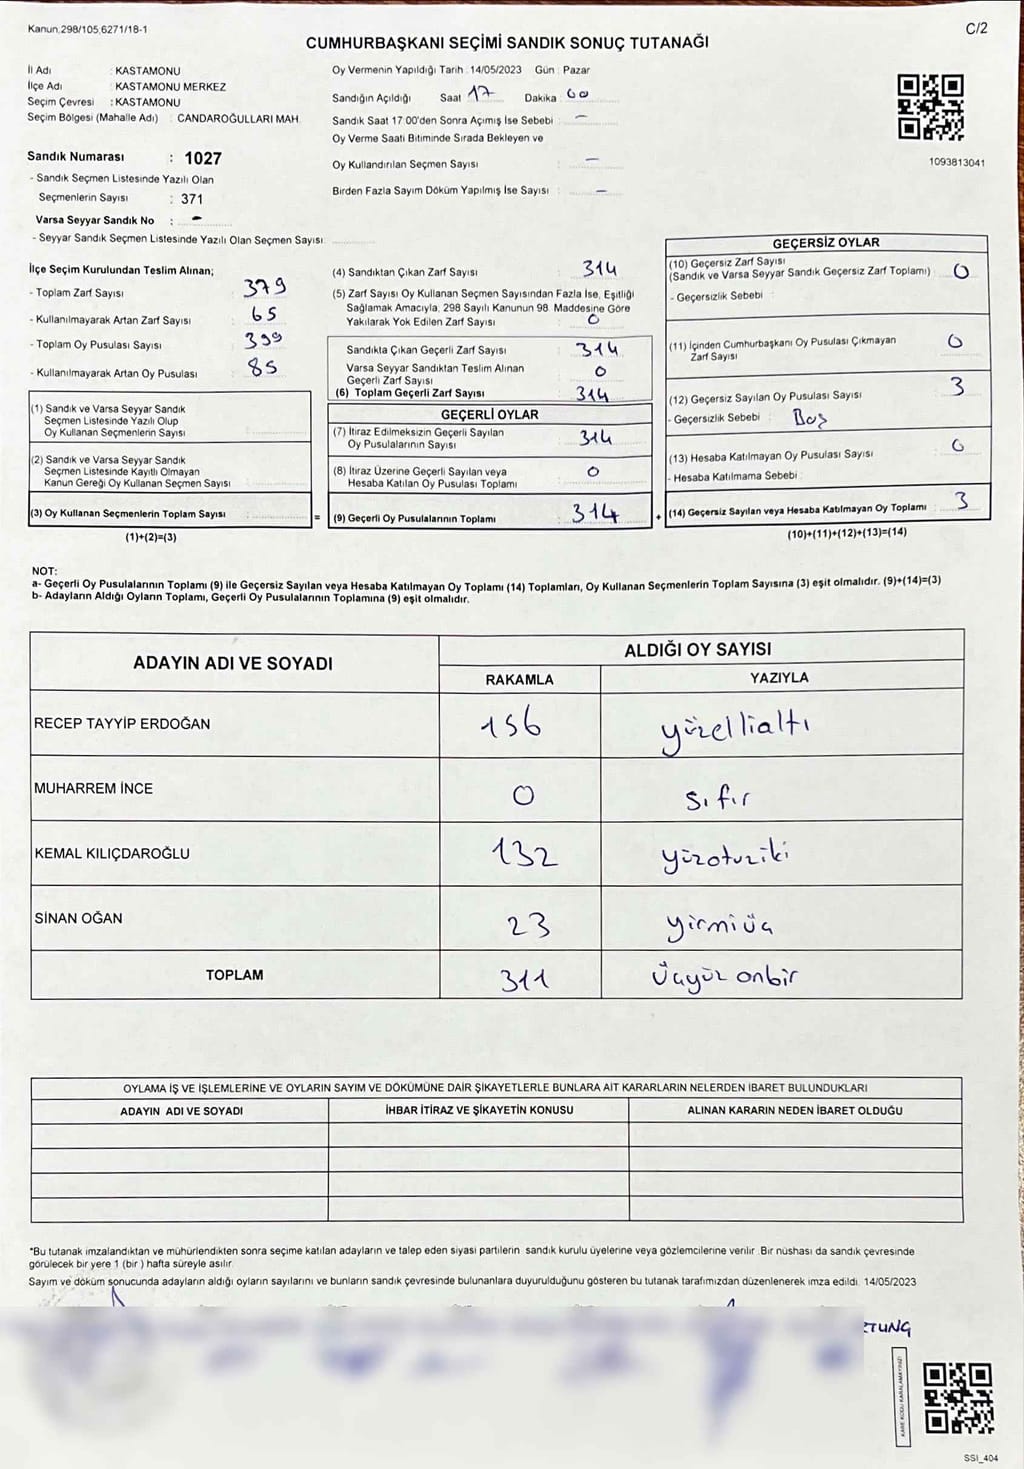 Kanun,298/105,6271/18-1
C/2
CUMHURBAŞKANI SEÇİMİ SANDIK SONUÇ TUTANAĞI
İl Adı : KASTAMONU
İlçe Adı : KASTAMONU MERKEZ
Seçim Çevresi : KASTAMONU
Seçim Bölgesi (Mahalle Adı) : CANDAROĞULLARI MAH.
Oy Vermenin Yapıldığı Tarih : 14/05/2023 Gün : Pazar
Sandığın Açıldığı Saat 17 Dakika 00
Sandık Saat 17:00'den Sonra Açımış İse Sebebi : -
Oy Verme Saati Bitiminde Sırada Bekleyen ve
Oy Kullandırılan Seçmen Sayısı : -
Birden Fazla Sayım Döküm Yapılmış İse Sayısı : -
1093813041
Sandık Numarası : 1027
- Sandık Seçmen Listesinde Yazılı Olan
Seçmenlerin Sayısı : 371
Varsa Seyyar Sandık No : -
- Seyyar Sandık Seçmen Listesinde Yazılı Olan Seçmen Sayısı:
İlçe Seçim Kurulundan Teslim Alınan;
- Toplam Zarf Sayısı : 379
- Kullanılmayarak Artan Zarf Sayısı : 65
- Toplam Oy Pusulası Sayısı : 399
- Kullanılmayarak Artan Oy Pusulası : 85
(1) Sandık ve Varsa Seyyar Sandık
Seçmen Listesinde Yazılı Olup
Oy Kullanan Seçmenlerin Sayısı :
(2) Sandık ve Varsa Seyyar Sandık
Seçmen Listesinde Kayıtlı Olmayan
Kanun Gereği Oy Kullanan Seçmen Sayısı :
(3) Oy Kullanan Seçmenlerin Toplam Sayısı :
(1)+(2)=(3)
(4) Sandıktan Çıkan Zarf Sayısı : 314
(5) Zarf Sayısı Oy Kullanan Seçmen Sayısından Fazla İse, Eşitliği
Sağlamak Amacıyla, 298 Sayılı Kanunun 98. Maddesine Göre
Yakılarak Yok Edilen Zarf Sayısı : 0
Sandıkta Çıkan Geçerli Zarf Sayısı : 314
Varsa Seyyar Sandıktan Teslim Alınan
Geçerli Zarf Sayısı : 0
(6) Toplam Geçerli Zarf Sayısı : 314
GEÇERLİ OYLAR
(7) İtiraz Edilmeksizin Geçerli Sayılan
Oy Pusulalarının Sayısı : 314
(8) İtiraz Üzerine Geçerli Sayılan veya
Hesaba Katılan Oy Pusulası Toplamı : 0
= (9) Geçerli Oy Pusulalarının Toplamı : 314
GEÇERSİZ OYLAR
(10) Geçersiz Zarf Sayısı
(Sandık ve Varsa Seyyar Sandık Geçersiz Zarf Toplamı) : 0
- Geçersizlik Sebebi :
(11) İçinden Cumhurbaşkanı Oy Pusulası Çıkmayan
Zarf Sayısı : 0
(12) Geçersiz Sayılan Oy Pusulası Sayısı : 3
- Geçersizlik Sebebi : Boş
(13) Hesaba Katılmayan Oy Pusulası Sayısı : 0
- Hesaba Katılmama Sebebi :
+ (14) Geçersiz Sayılan veya Hesaba Katılmayan Oy Toplamı : 3
(10)+(11)+(12)+(13)=(14)
NOT:
a- Geçerli Oy Pusulalarının Toplamı (9) ile Geçersiz Sayılan veya Hesaba Katılmayan Oy Toplamı (14) Toplamları, Oy Kullanan Seçmenlerin Toplam Sayısına (3) eşit olmalıdır. (9)+(14)=(3)
b- Adayların Aldığı Oyların Toplamı, Geçerli Oy Pusulalarının Toplamına (9) eşit olmalıdır.
ADAYIN ADI VE SOYADI ALDIĞI OY SAYISI
RAKAMLA YAZIYLA
RECEP TAYYİP ERDOĞAN 156 yüzellialtı
MUHARREM İNCE 0 sıfır
KEMAL KILIÇDAROĞLU 132 yüzotuziki
SİNAN OĞAN 23 yirmiüç
TOPLAM 311 Üçyüz onbir
OYLAMA İŞ VE İŞLEMLERİNE VE OYLARIN SAYIM VE DÖKÜMÜNE DAİR ŞİKAYETLERLE BUNLARA AİT KARARLARIN NELERDEN İBARET BULUNDUKLARI
ADAYIN ADI VE SOYADI İHBAR İTİRAZ VE ŞİKAYETİN KONUSU ALINAN KARARIN NEDEN İBARET OLDUĞU
*Bu tutanak imzalandıktan ve mühürlendikten sonra seçime katılan adayların ve talep eden siyasi partilerin sandık kurulu üyelerine veya gözlemcilerine verilir. Bir nüshası da sandık çevresinde
görülecek bir yere 1 (bir ) hafta süreyle asılır.
Sayım ve döküm sonucunda adayların aldığı oyların sayılarını ve bunların sandık çevresinde bulunanlara duyurulduğunu gösteren bu tutanak tarafımızdan düzenlenerek imza edildi. 14/05/2023
TUNG
KARE KODU KARALAMAYINIZ!
SSI_404